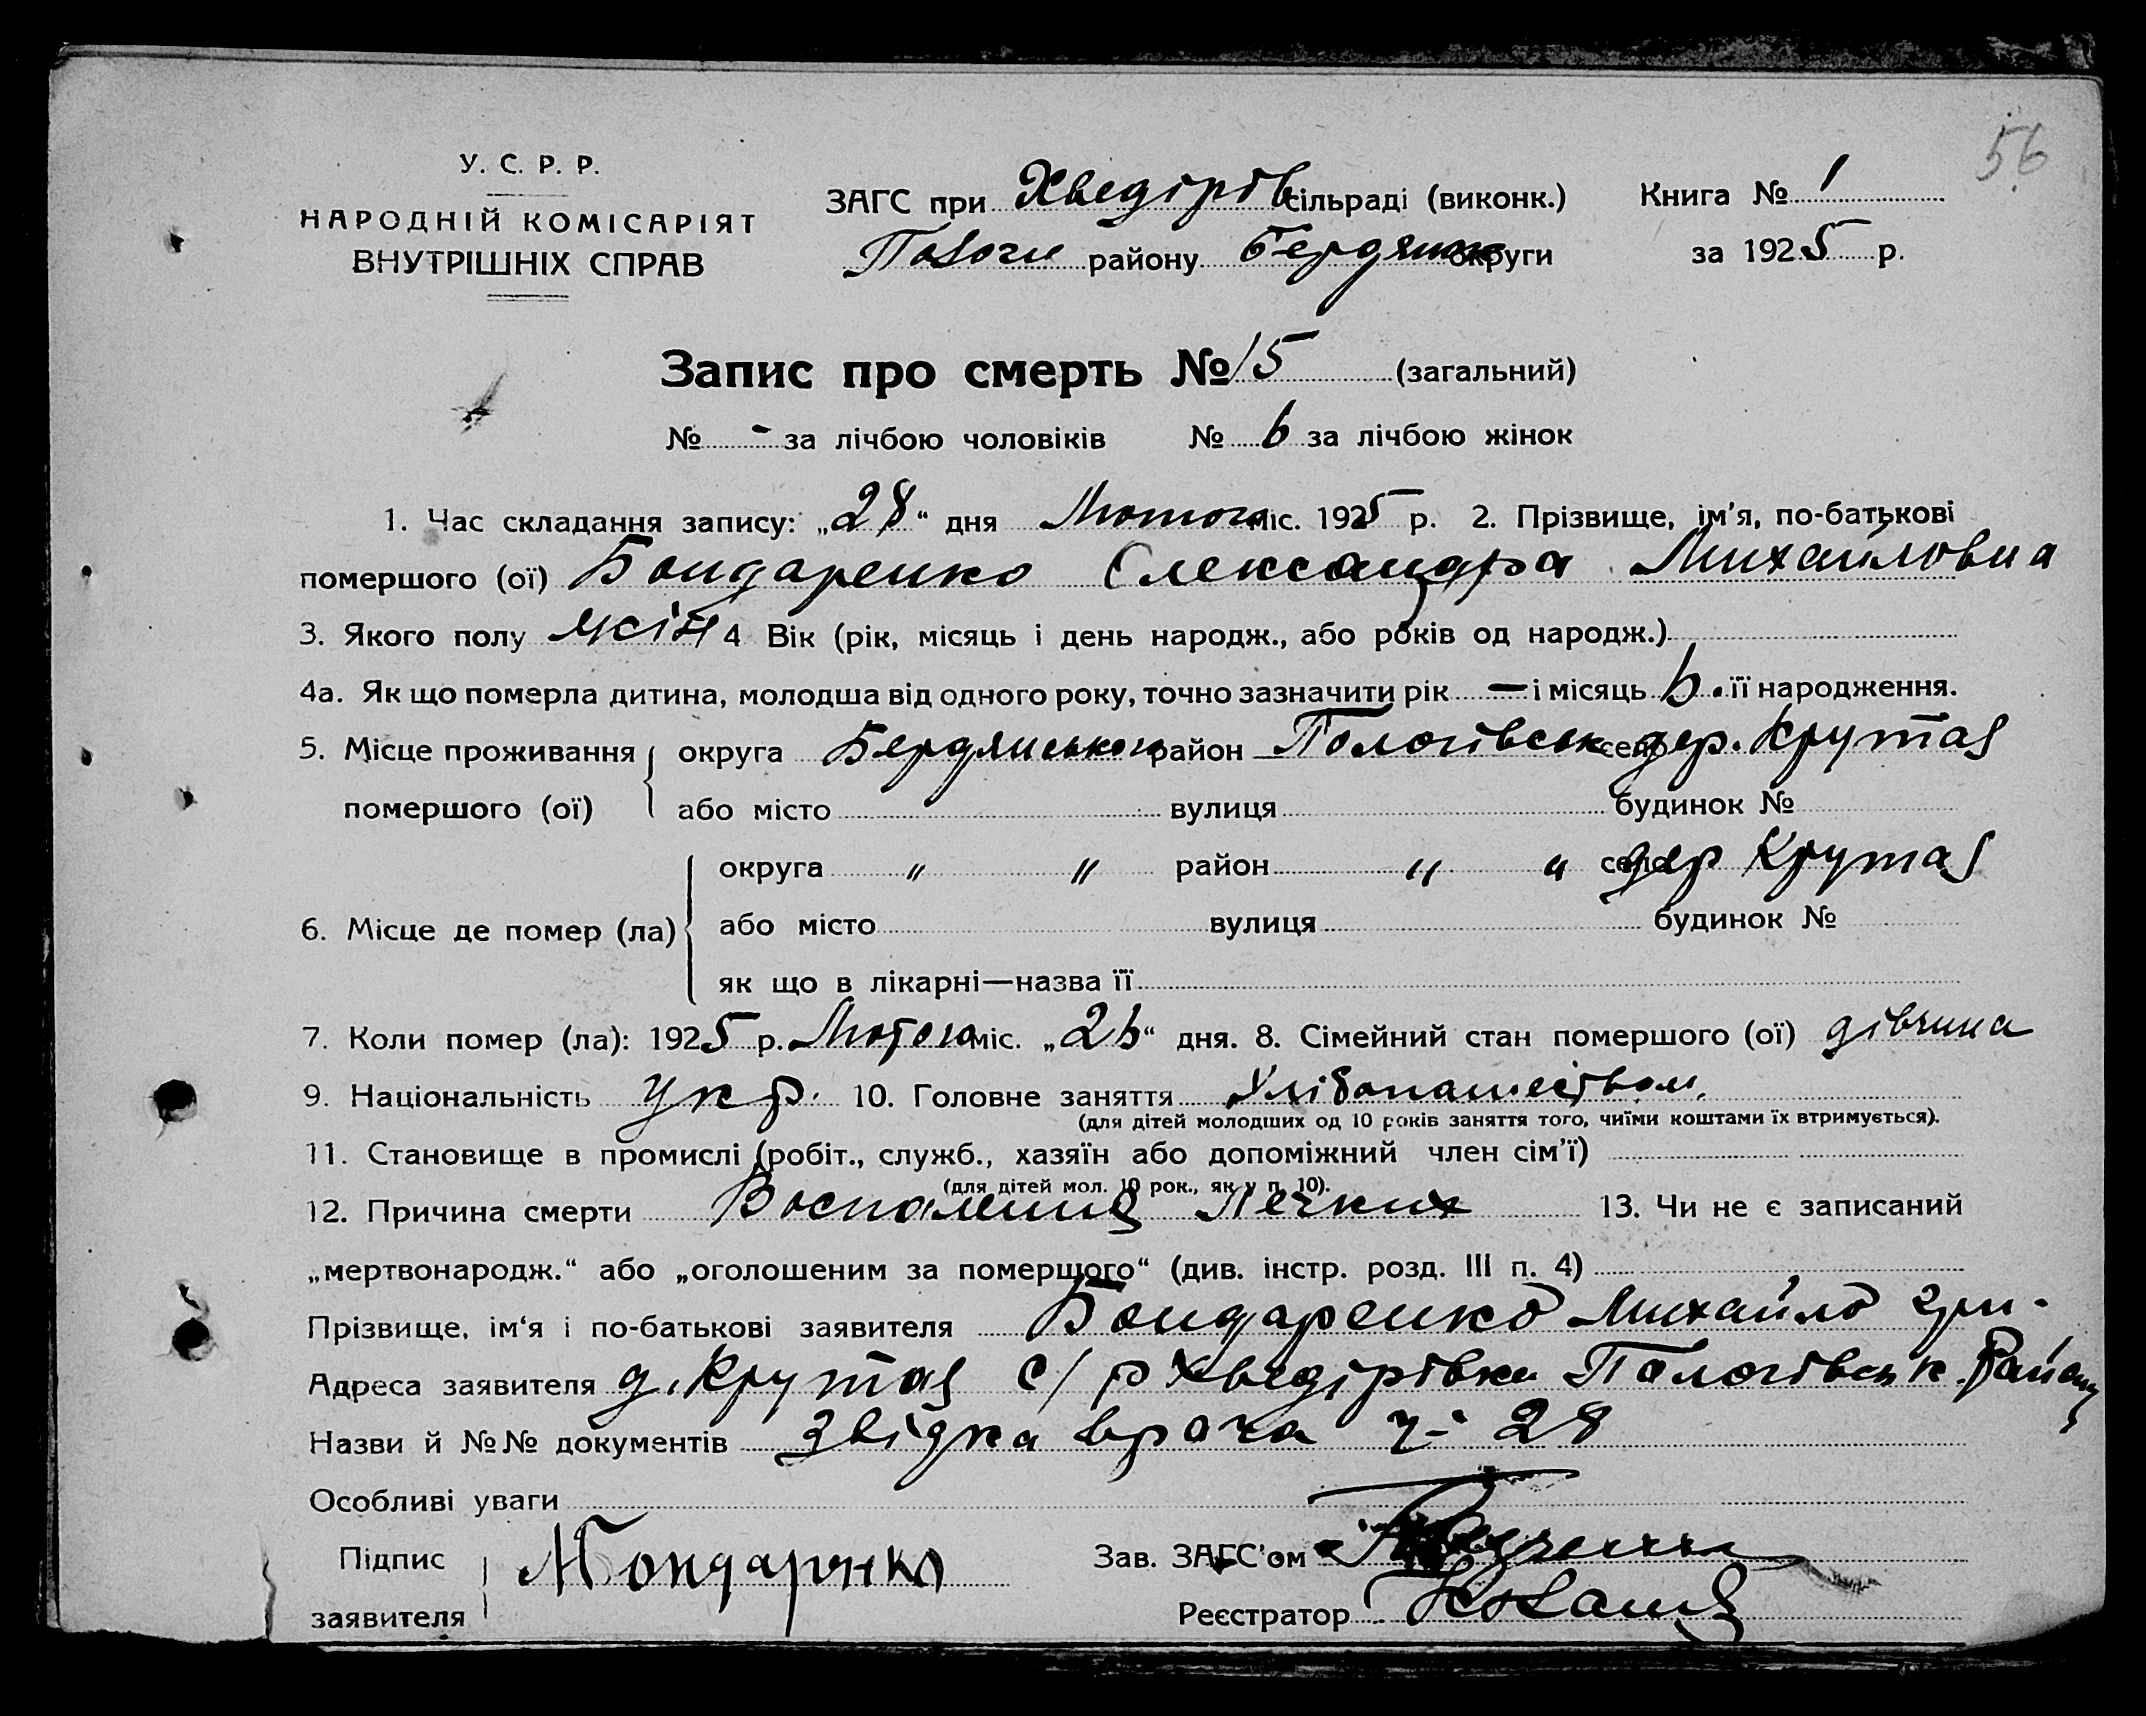 56
У. С. Р. Р.
НАРОДНІЙ КОМІСАРІЯТ
ВНУТРІШНІХ СПРАВ
ЗАГС при Хведірів сільраді (виконк.)
Пологи району Бердянськ округи
Книга № 1
за 1925 р.
Запис про смерть № 15 (загальний)
№ - за лічбою чоловіків № 6 за лічбою жінок
1. Час складання запису: „28“ дня Лютого міс. 1925 р. 2. Прізвище, ім'я, по-батькові
помершого (ої) Бондаренко Олександра Михайловна
3. Якого полу жін 4 Вік (рік, місяць і день народж., або років од народж.)
4а. Як що померла дитина, молодша від одного року, точно зазначити рік — і місяць 6. її народження.
5. Місце проживання помершого (ої) округа Бердянського район Пологівськ село дер. Крутая
або місто вулиця будинок №
6. Місце де помер (ла) округа " " район " " село дер Крутая
або місто вулиця будинок №
як що в лікарні—назва її
7. Коли помер (ла): 1925 р. Лютого міс. „26“ дня. 8. Сімейний стан помершого (ої) дівчина
9. Національність укр. 10. Головне заняття Хлібопашеством.
(для дітей молодших од 10 років заняття того, чиїми коштами їх втримується).
11. Становище в промислі (робіт., служб., хазяїн або допоміжний член сім'ї)
(для дітей мол. 10 рок., як у п. 10).
12. Причина смерти Воспаления Легких 13. Чи не є записаний
„мертвонародж.“ або „оголошеним за померщого“ (див. інстр. розд. III п. 4)
Прізвище, ім'я і по-батькові заявителя Бондаренко Михайло Гри-
Адреса заявителя д. Крутая с/р Хведірівки Пологівськ. Району
Назви й №№ документів Звідка врача ч- 28
Особливі уваги
Підпис заявителя Бондаренко
Зав. ЗАГС'ом
Реєстратор